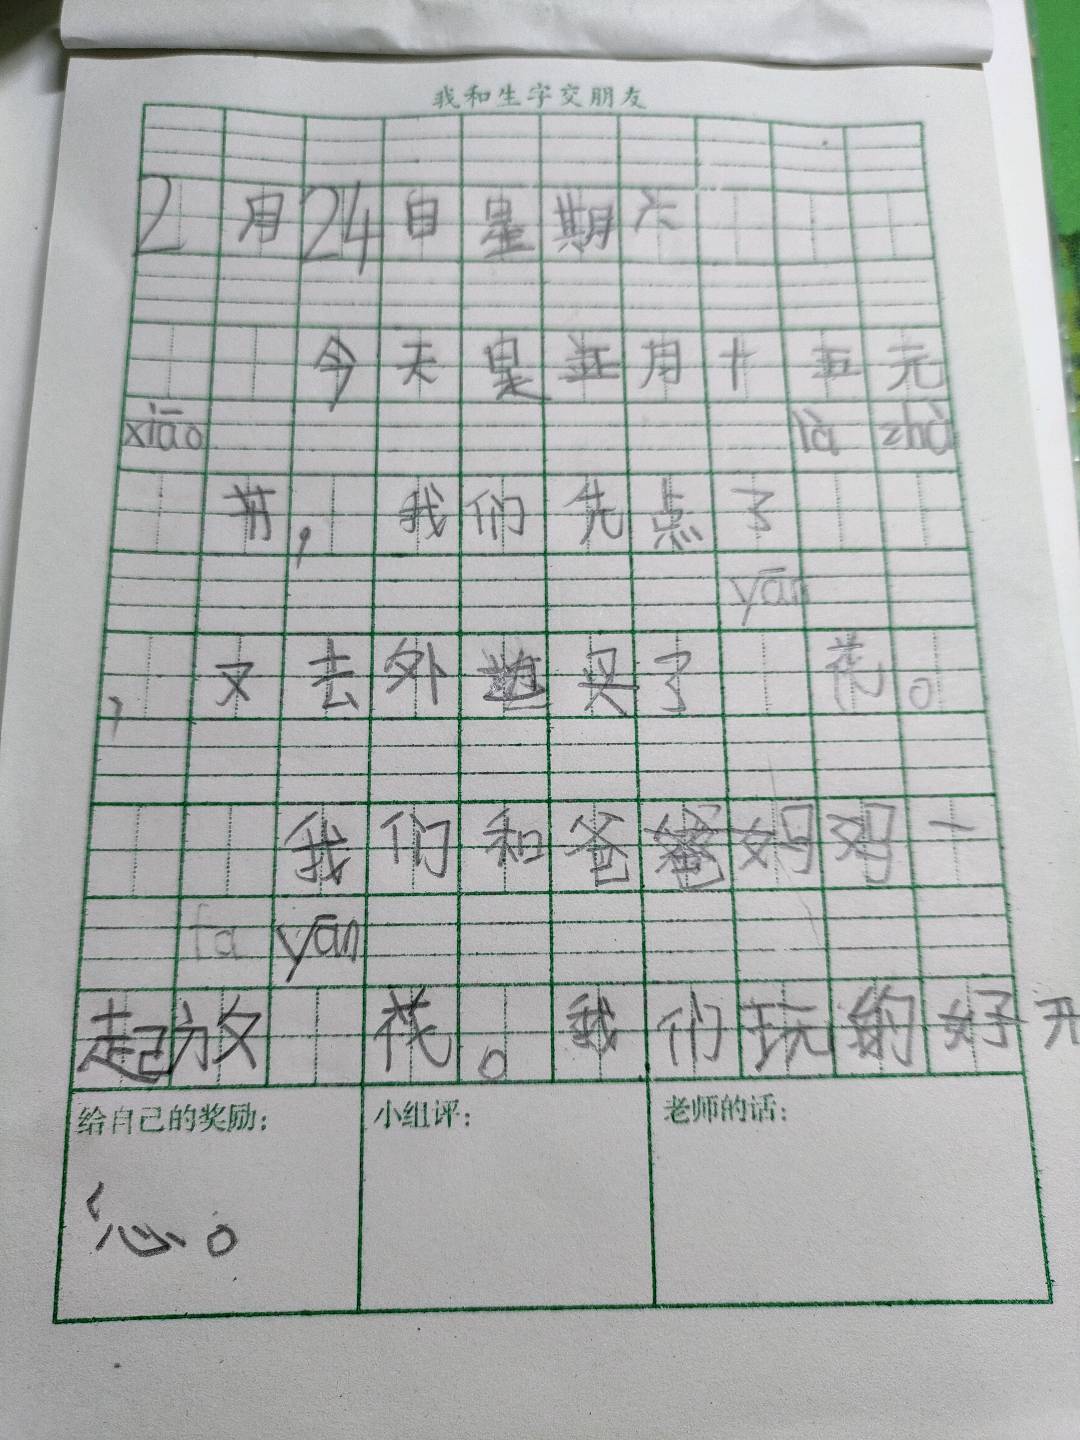 我和生字交朋友
2月24日星期六
今天是正月十五元
xiāo là zhà
节，我们先点了
yān
，又去外边买了 花。
我们和爸爸妈妈一
fà yān
起放 花。我们玩的好开
给自己的奖励： 小组评： 老师的话：
心。